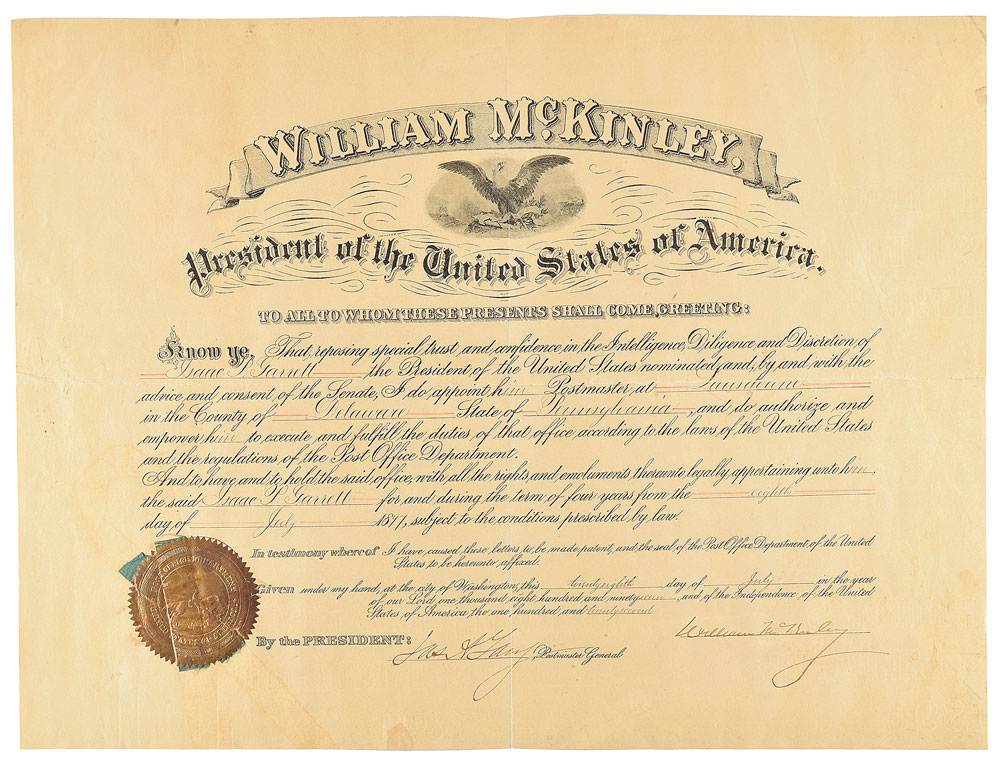 WILLIAM McKINLEY,
President of the United States of America.
TO ALL TO WHOM THESE PRESENTS SHALL COME, GREETING:
Know ye, That, reposing special trust and confidence in the Intelligence, Diligence and Discretion of
Isaac P. Garrett the President of the United States nominated, and, by and with the
advice and consent of the Senate, I do appoint him Postmaster at Lansdowne
in the County of Delaware State of Pennsylvania, and do authorize and
empower him to execute and fulfill the duties of that office, according to the laws of the United States
and the regulations of the Post Office Department.
And to have and to hold the said office, with all the rights and emoluments thereunto legally appertaining unto him,
the said Isaac P. Garrett for and during the term of four years from the eighth
day of July 1897, subject to the conditions prescribed by law.
In testimony whereof I have caused these letters to be made patent, and the seal of the Post Office Department of the United
States to be hereunto affixed.
Given under my hand, at the city of Washington, this twentyeighth day of July in the year
of our Lord one thousand eight hundred and ninetyseven, and of the Independence of the United
States of America the one hundred and twentysecond
By the PRESIDENT:
William McKinley
Jas. A. Gary, Postmaster General.